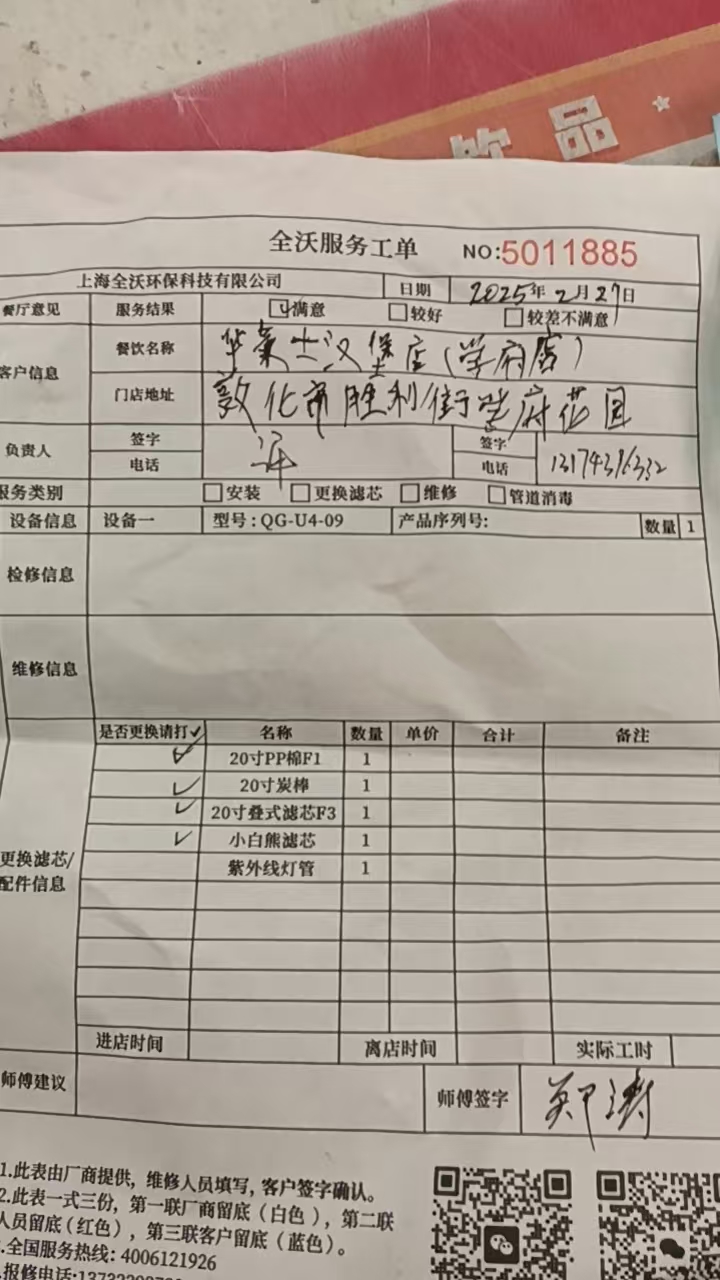 饮品
全沃服务工单 NO:5011885
上海全沃环保科技有限公司 日期 2025年2月27日
餐厅意见 服务结果 ☑满意 □较好 □较差不满意
客户信息 餐饮名称 华莱士汉堡店(学府店)
门店地址 敦化市胜利街学府花园
负责人 签字 签字
电话 电话 13174396332
服务类别 □安装 □更换滤芯 □维修 □管道消毒
设备信息 设备一 型号:QG-U4-09 产品序列号: 数量 1
检修信息
维修信息
是否更换请打✓ 名称 数量 单价 合计 备注
✓ 20寸PP棉F1 1
✓ 20寸炭棒 1
✓ 20寸叠式滤芯F3 1
✓ 小白熊滤芯 1
紫外线灯管 1
更换滤芯/
配件信息
进店时间 离店时间 实际工时
师傅建议 师傅签字 郑涛
1.此表由厂商提供，维修人员填写，客户签字确认。
2.此表一式三份，第一联厂商留底（白色），第二联
人员留底（红色），第三联客户留底（蓝色）。
.全国服务热线: 4006121926
.报修电话: